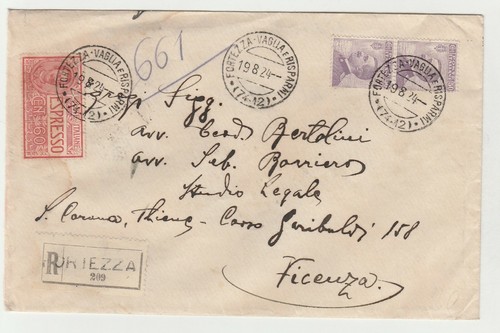 661
FORTEZZA - VAGLIA E RISPARMI
19 8 24
(74-12)
FORTEZZA - VAGLIA E RISPARMI
19 8 24
(74-12)
FORTEZZA - VAGLIA E RISPARMI
19 8 24
(74-12)
ESPRESSO
CENT. 60
Sigg.
avv. Bertolini
avv. Seb. Barriero
Studio Legale
S. Corona, Thiene - Corso Garibaldi 158
Vicenza.
R FORTEZZA
209